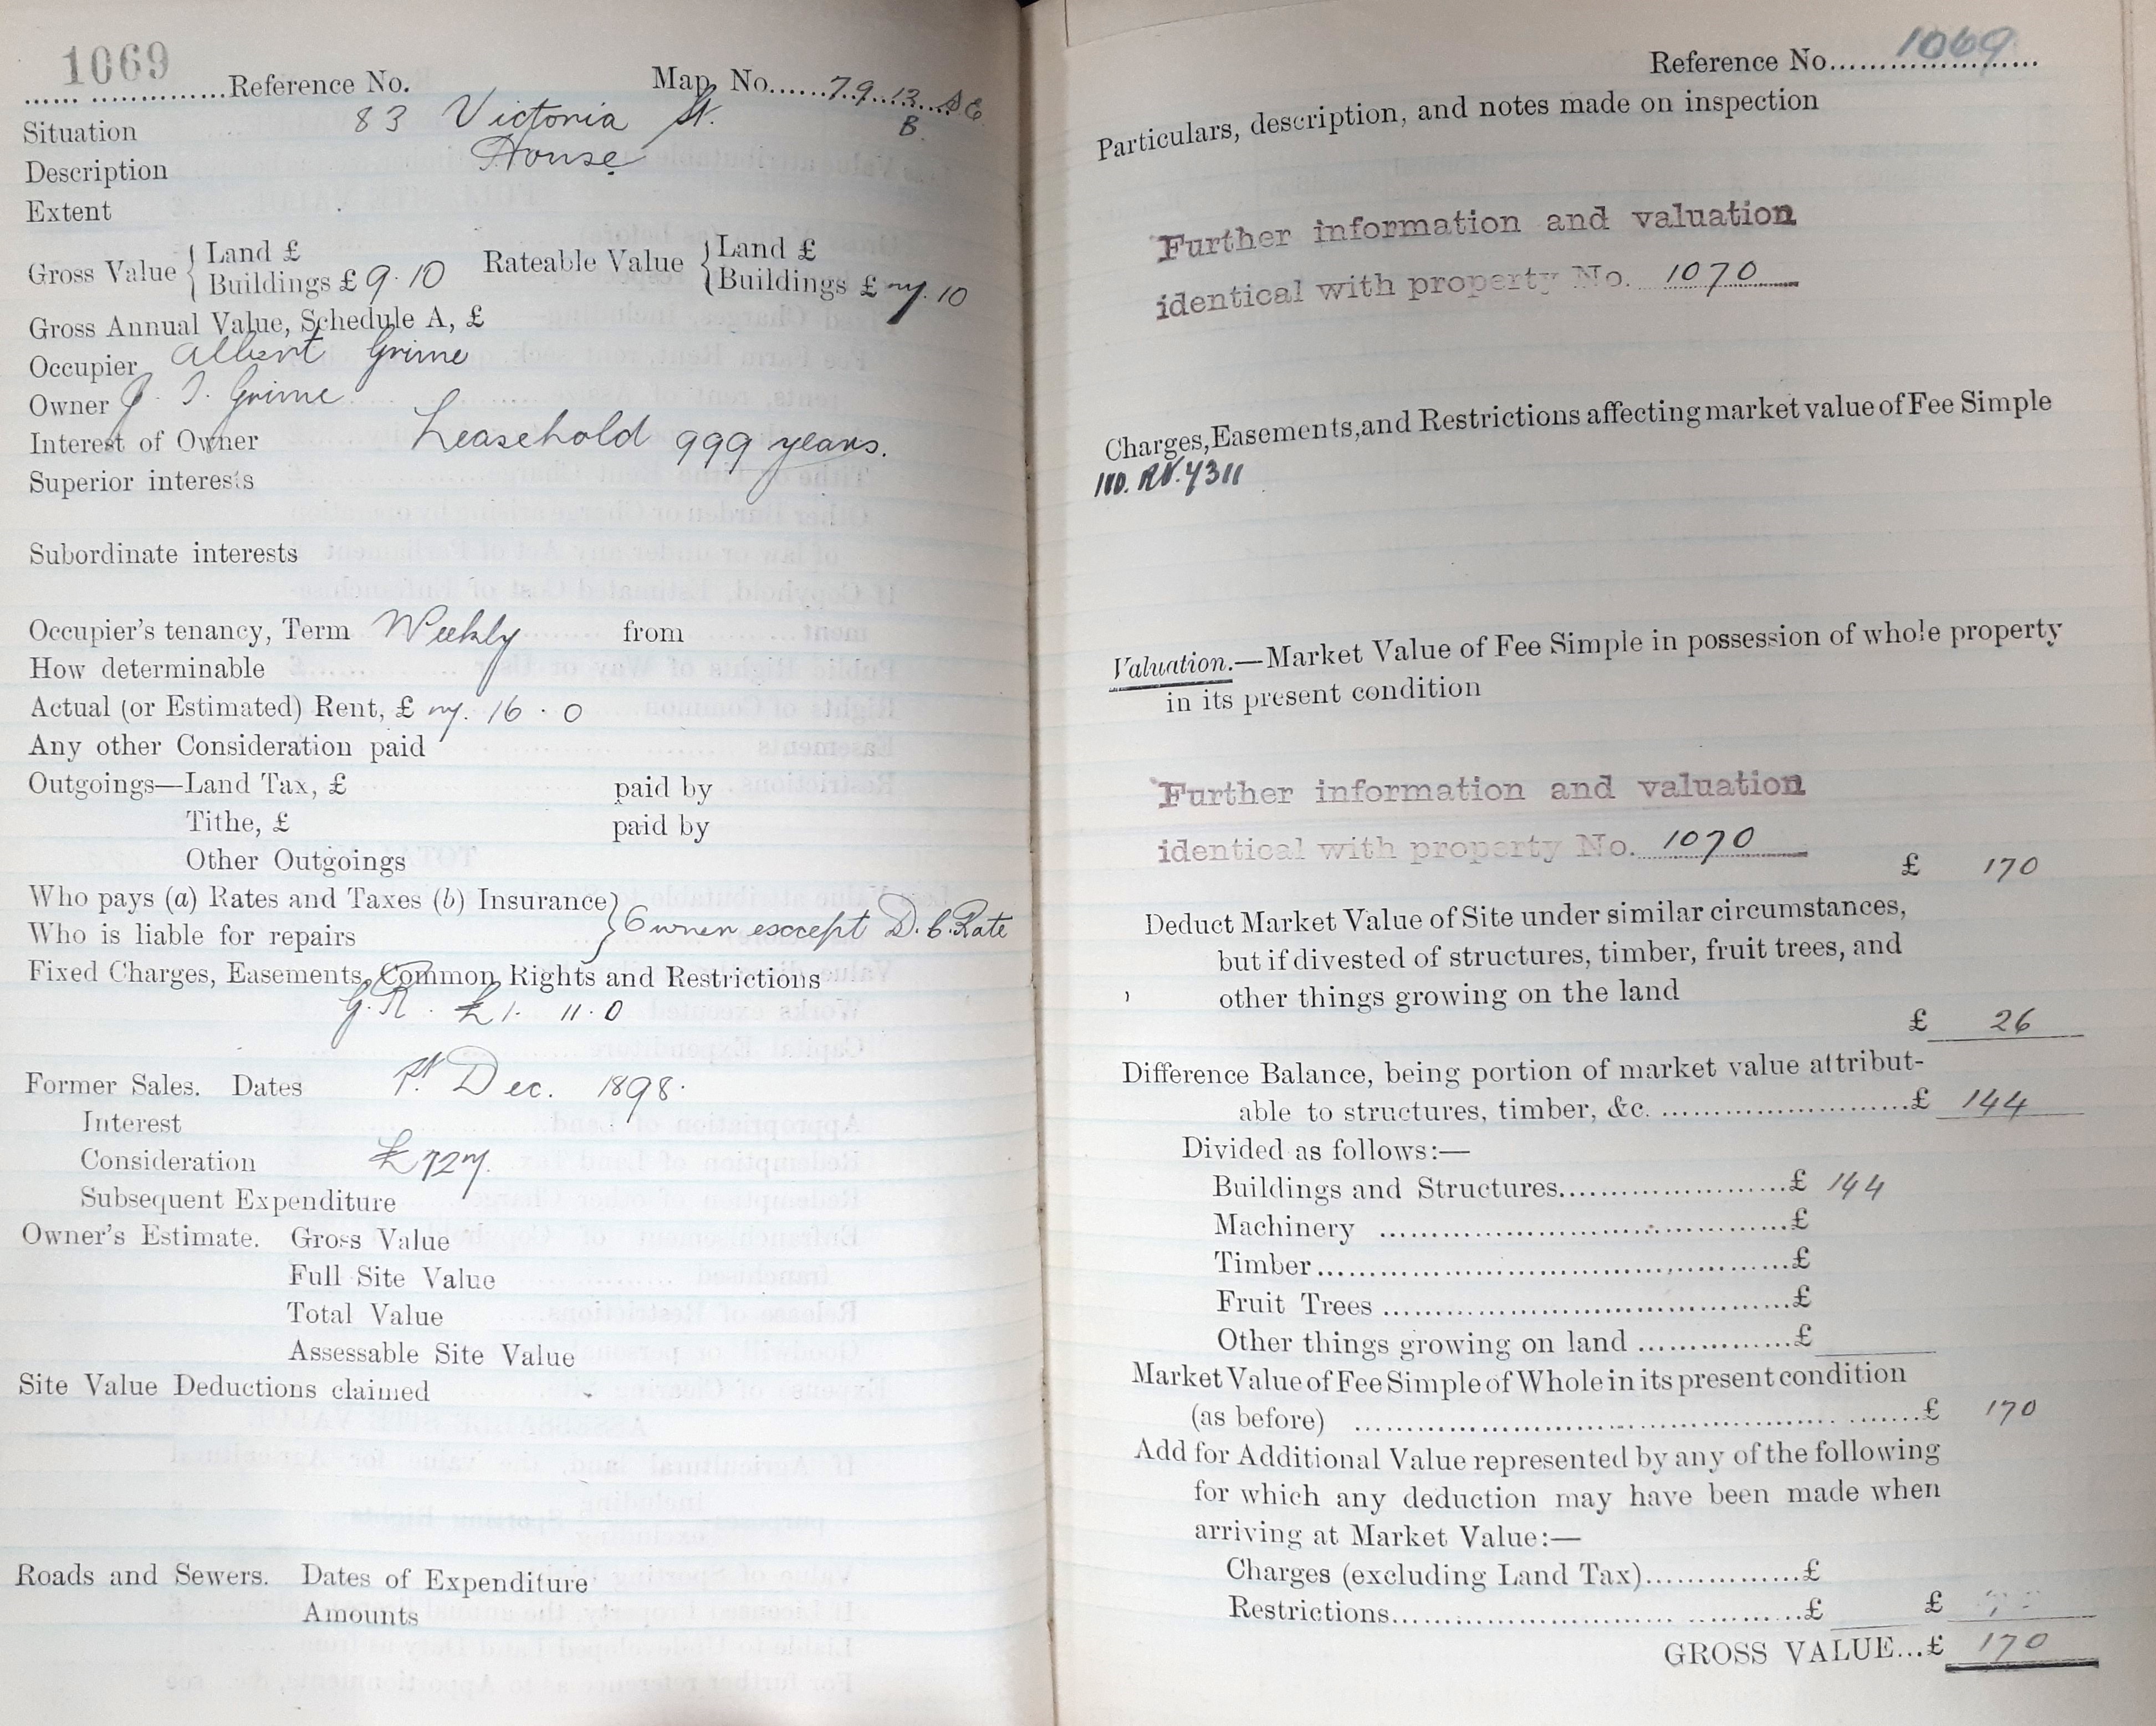 1069
...... ..............Reference No. Map. No......79.13
Situation 83 Victoria St. B.
Description House
Extent
Gross Value { Land £ Rateable Value { Land £
Buildings £ 9.10 Buildings £ 7.10
Gross Annual Value, Schedule A, £
Occupier Albert Grime
Owner J. T. Grime
Interest of Owner Leasehold 999 years.
Superior interests
Subordinate interests
Occupier's tenancy, Term Weekly from
How determinable
Actual (or Estimated) Rent, £ 7. 16 . 0
Any other Consideration paid
Outgoings—Land Tax, £ paid by
Tithe, £ paid by
Other Outgoings
Who pays (a) Rates and Taxes (b) Insurance } Owner except D. C. Rate
Who is liable for repairs
Fixed Charges, Easements, Common Rights and Restrictions
G.R. £1. 11.0
Former Sales. Dates Dec. 1898.
Interest
Consideration £727.
Subsequent Expenditure
Owner's Estimate. Gross Value
Full Site Value
Total Value
Assessable Site Value
Site Value Deductions claimed
Roads and Sewers. Dates of Expenditure
Amounts
Reference No.......1069
Particulars, description, and notes made on inspection
Further information and valuation
identical with property No. 1070
Charges, Easements, and Restrictions affecting market value of Fee Simple
Valuation.—Market Value of Fee Simple in possession of whole property
in its present condition
Further information and valuation
identical with property No. 1070
£ 170
Deduct Market Value of Site under similar circumstances,
but if divested of structures, timber, fruit trees, and
other things growing on the land
£ 26
Difference Balance, being portion of market value attribut-
able to structures, timber, &c. ..............................£ 144
Divided as follows:—
Buildings and Structures...........................£ 144
Machinery ...................................................£
Timber.........................................................£
Fruit Trees ..................................................£
Other things growing on land ...................£
Market Value of Fee Simple of Whole in its present condition
(as before) ..........................................................£ 170
Add for Additional Value represented by any of the following
for which any deduction may have been made when
arriving at Market Value:—
Charges (excluding Land Tax)..................£
Restrictions................................................£ £
GROSS VALUE...£ 170